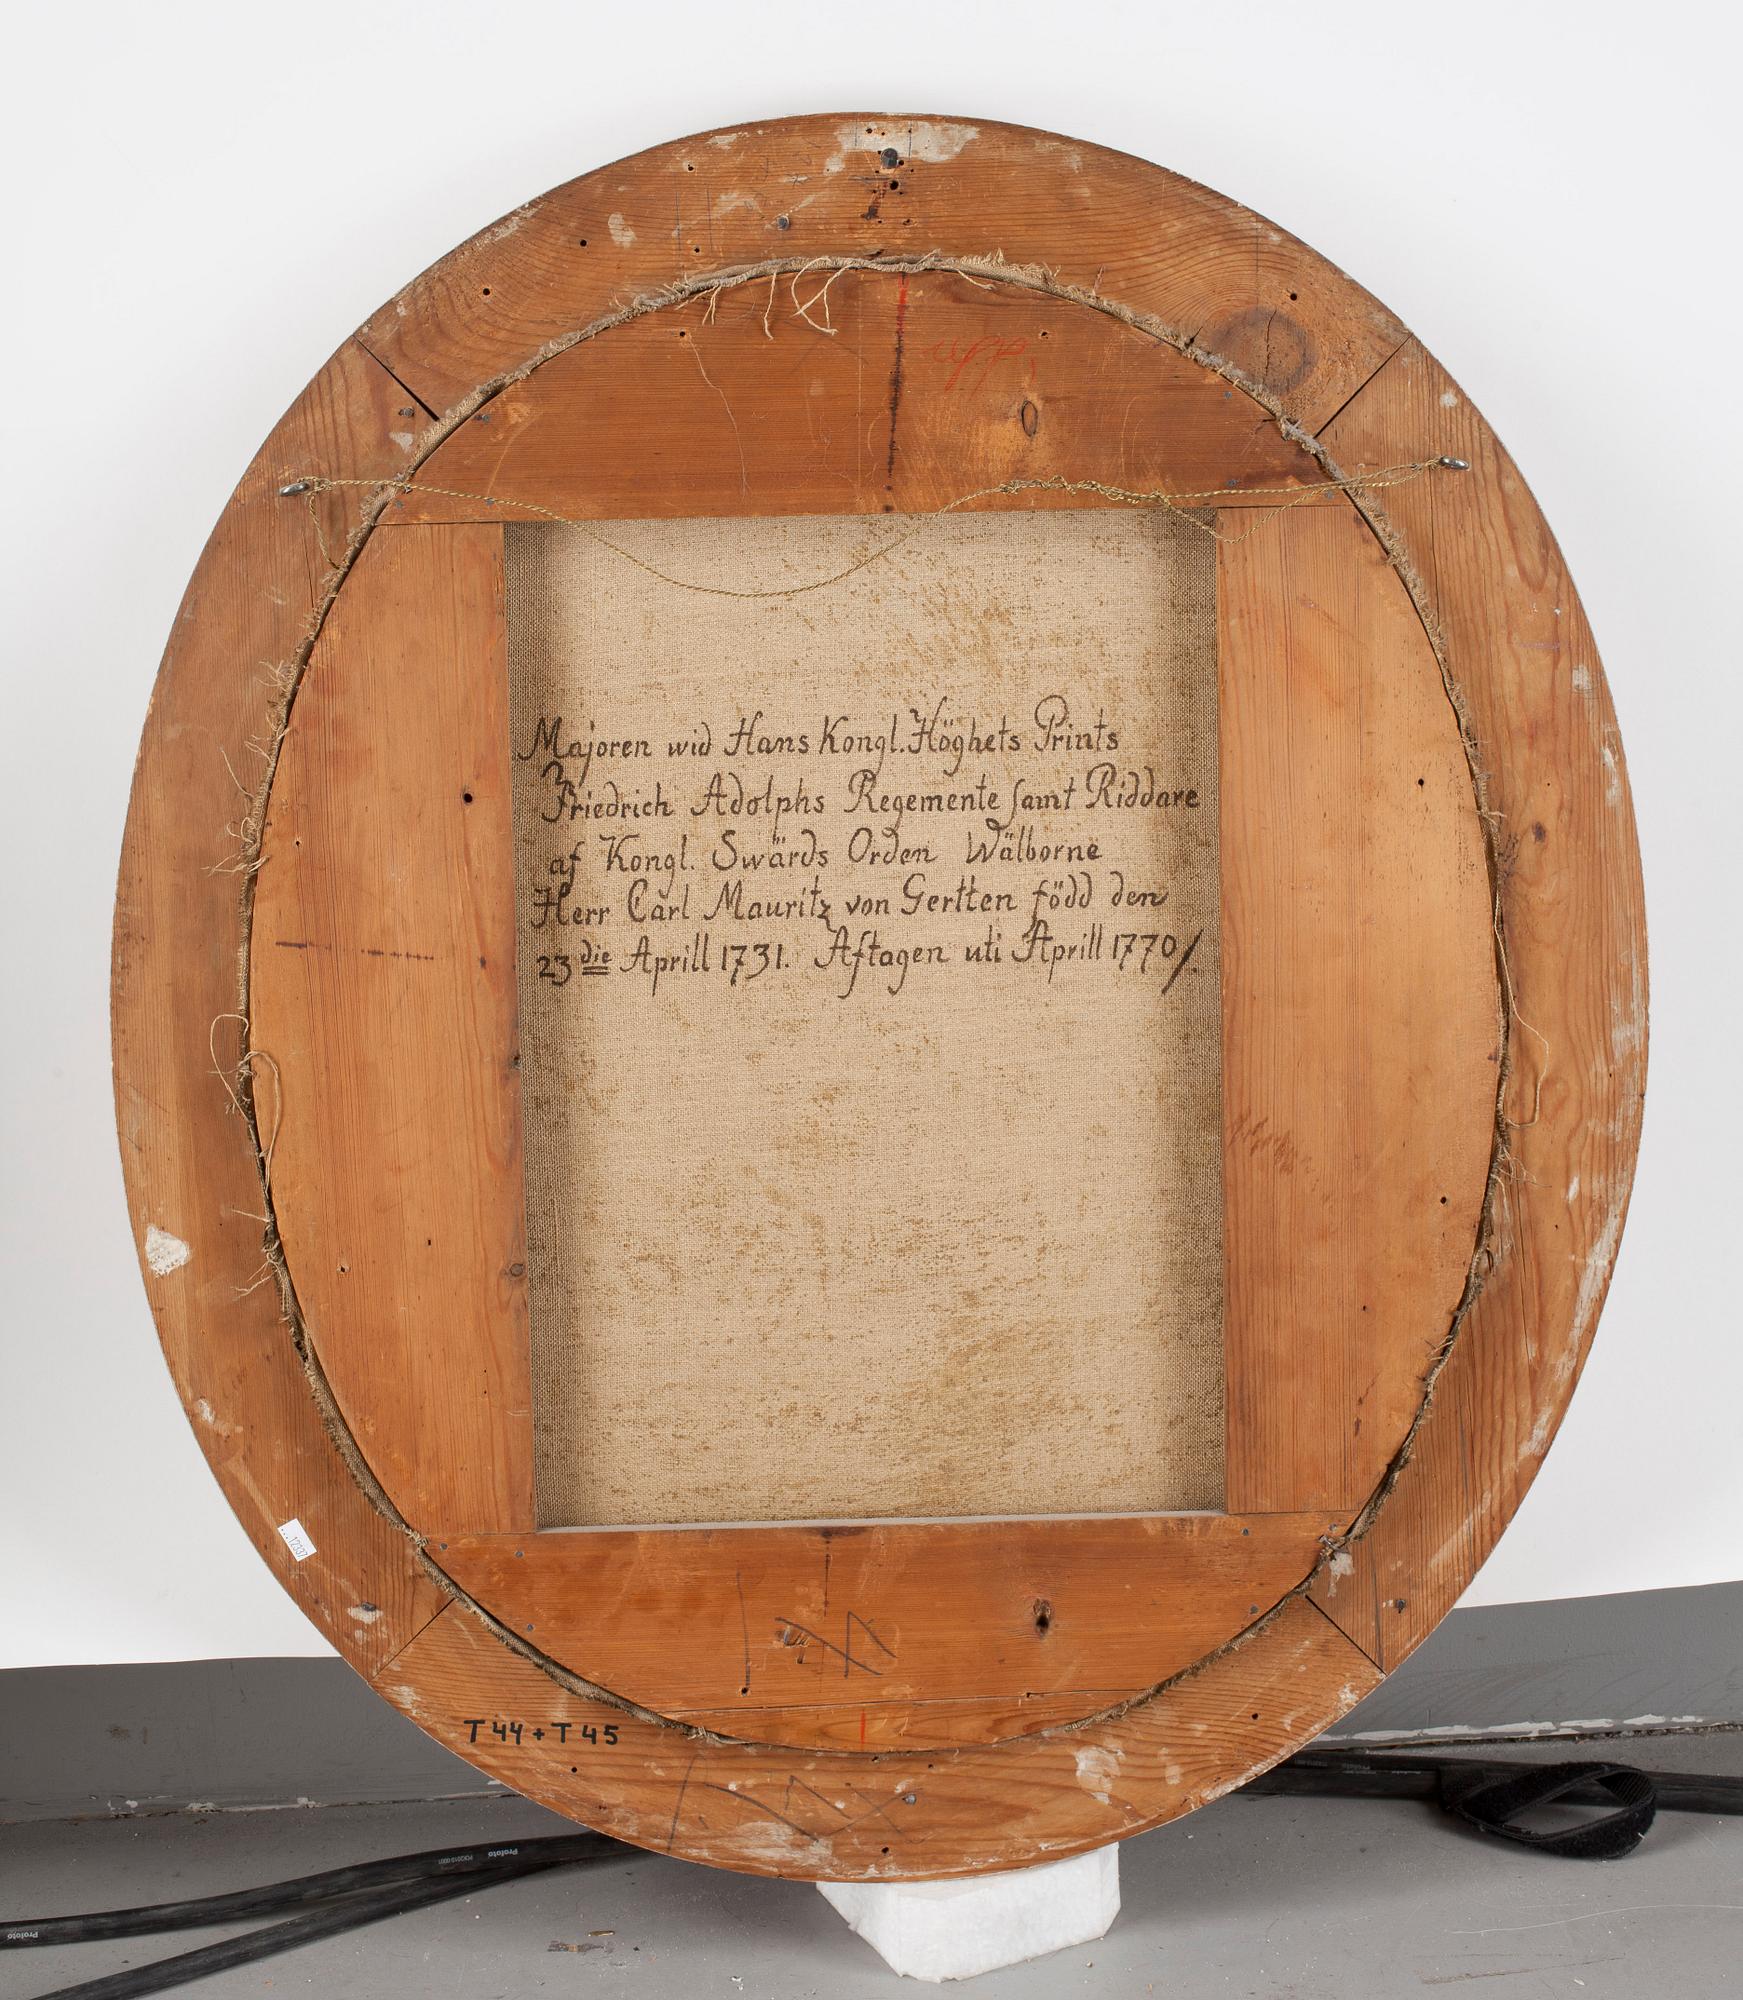 upp.
Majoren wid Hans Kongl. Höghets Prints
Friedrich Adolphs Regemente samt Riddare
af Kongl. Swärds Orden Wälborne
Herr Carl Mauritz von Gertten född den
23 die Aprill 1731. Aftagen uti Aprill 1770/.
...17337
T44+T45
Profoto
Profoto
Profoto